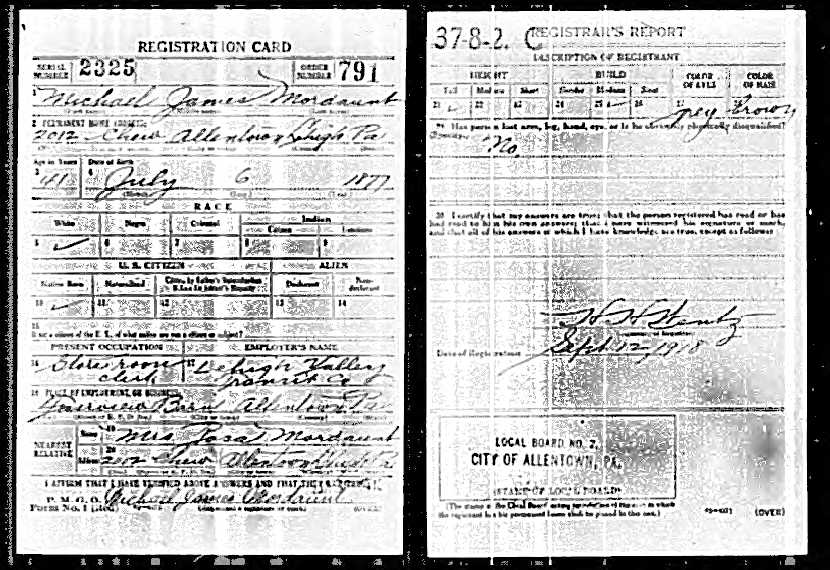 REGISTRATION CARD
SERIAL NUMBER 2325 ORDER NUMBER 791
1 Michael James Mordaunt
2 PERMANENT HOME ADDRESS:
2012 Chew Allentown Lehigh Pa
Age in Years Date of Birth
3 41 4 July 6 1877
RACE
White Negro Oriental Indian
Citizen
5 ✓ 6 7 8 9
U. S. CITIZEN ALIEN
Native Born Naturalized Citizen by Father's Naturalization Before Registrant's Majority Declarant Non-declarant
10 ✓ 11 12 13 14
15
If not a citizen of the U. S., of what nation are you a citizen or subject?
PRESENT OCCUPATION EMPLOYER'S NAME
16 Storeroom clerk 17 Lehigh Valley Transit Co
18 PLACE OF EMPLOYMENT OR BUSINESS
Fairview Barn Allentown Pa
NEAREST RELATIVE Name 19 Mrs Rosa Mordaunt
Address 20 2012 Chew Allentown Lehigh Pa
I AFFIRM THAT I HAVE VERIFIED ABOVE ANSWERS AND THAT THEY ARE TRUE
P. M. G. O. Michael James Mordaunt
Form No. 1 (Red) (Registrant's signature or mark) (OVER)
37-8-2. C REGISTRAR'S REPORT
DESCRIPTION OF REGISTRANT
HEIGHT BUILD COLOR OF EYES COLOR OF HAIR
Tall Medium Short Slender Medium Stout
21 22 23 24 25 26 27 Grey Brown
29 Has person lost arm, leg, hand, eye, or is he obviously physically disqualified?
(Specify.) No
30 I certify that my answers are true; that the person registered has read or has
had read to him his own answers; that I have witnessed his signature or mark,
and that all of his answers of which I have knowledge are true, except as follows:
H H Stentz
Date of Registration Sept 12-1918
LOCAL BOARD NO. 2,
CITY OF ALLENTOWN, PA.
(STAMP OF LOCAL BOARD)
(The stamp of the Local Board having jurisdiction of the area in which
the registrant has his permanent home shall be placed in this box.)
(OVER)